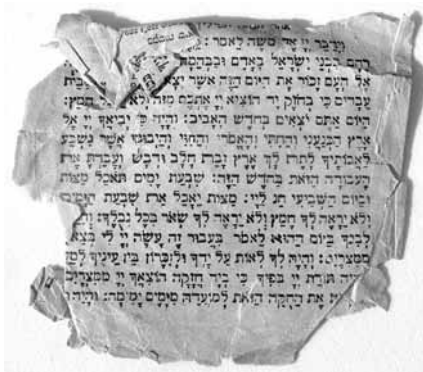 וַיְדַבֵּר יְיָ אֶל משֶׁה לֵּאמֹר:
רֶחֶם בִּבְנֵי יִשְׂרָאֵל בָּאָדָם וּבַבְּהֵמָה
אֶל הָעָם זָכוֹר אֶת הַיּוֹם הַזֶּה אֲשֶׁר
עֲבָדִים כִּי בְּחֹזֶק יָד הוֹצִיא יְיָ אֶתְכֶם מִזֶּה וְלֹא חָמֵץ:
הַיּוֹם אַתֶּם יֹצְאִים בְּחֹדֶשׁ הָאָבִיב: וְהָיָה כִּי יְבִיאֲךָ יְיָ אֶל
אֶרֶץ הַכְּנַעֲנִי וְהַחִתִּי וְהָאֱמֹרִי וְהַחִוִּי וְהַיְבוּסִי אֲשֶׁר נִשְׁבַּע
לַאֲבוֹתֶיךָ לָתֶת לָךְ אֶרֶץ זָבַת חָלָב וּדְבָשׁ וְעָבַדְתָּ אֶת
הָעֲבוֹדָה הַזֹּאת בַּחֹדֶשׁ הַזֶּה: שִׁבְעַת יָמִים תֹּאכַל מַצּוֹת
וּבַיּוֹם הַשְּׁבִיעִי חַג לַיְיָ: מַצּוֹת יֵאָכֵל אֵת שִׁבְעַת הַיָּמִים
וְלֹא יֵרָאֶה לְךָ חָמֵץ וְלֹא יֵרָאֶה לְךָ שְׂאֹר בְּכָל גְּבֻלֶךָ:
לְבִנְךָ בַּיּוֹם הַהוּא לֵאמֹר בַּעֲבוּר זֶה עָשָׂה יְיָ לִי
מִמִּצְרָיִם: וְהָיָה לְךָ לְאוֹת עַל יָדְךָ וּלְזִכָּרוֹן בֵּין עֵינֶיךָ
תּוֹרַת יְיָ בְּפִיךָ כִּי בְּיָד חֲזָקָה הוֹצִאֲךָ יְיָ מִמִּצְרָיִם
אֶת הַחֻקָּה הַזֹּאת לְמוֹעֲדָהּ מִיָּמִים יָמִימָה: וְהָיָה